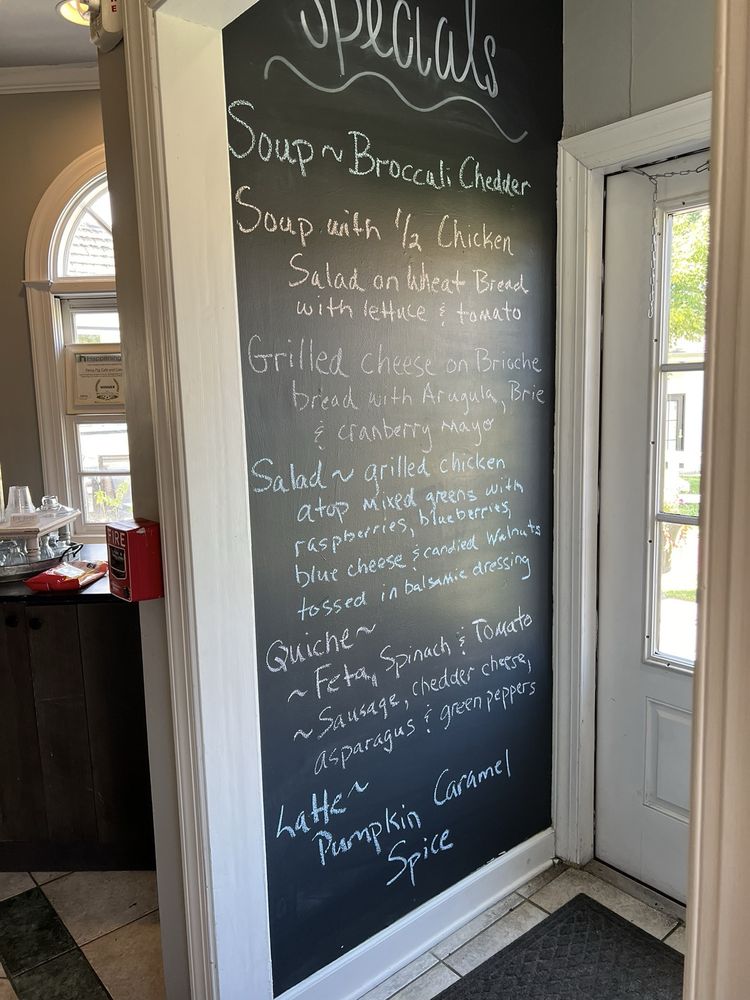 Specials
Soup ~ Broccali Chedder
Soup with 1/2 Chicken
Salad on Wheat Bread
with lettuce & tomato
Grilled cheese on Brioche
bread with Arugula, Brie
& cranberry Mayo
Salad ~ grilled chicken
atop mixed greens with
raspberries, blueberries,
blue cheese & candied walnuts
tossed in balsamic dressing
Quiche ~
~ Feta, Spinach & Tomato
~ Sausage, chedder cheese,
asparagus & green peppers
Latte ~
Pumpkin Caramel
Spice
Happening
FIRE